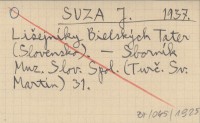 SUZA J. 1937.
Lišejníky Bielských Tater
(Slovensko). — Sborník
Muz. Slov. Spol. (Turč. Sv.
Martin) 31.